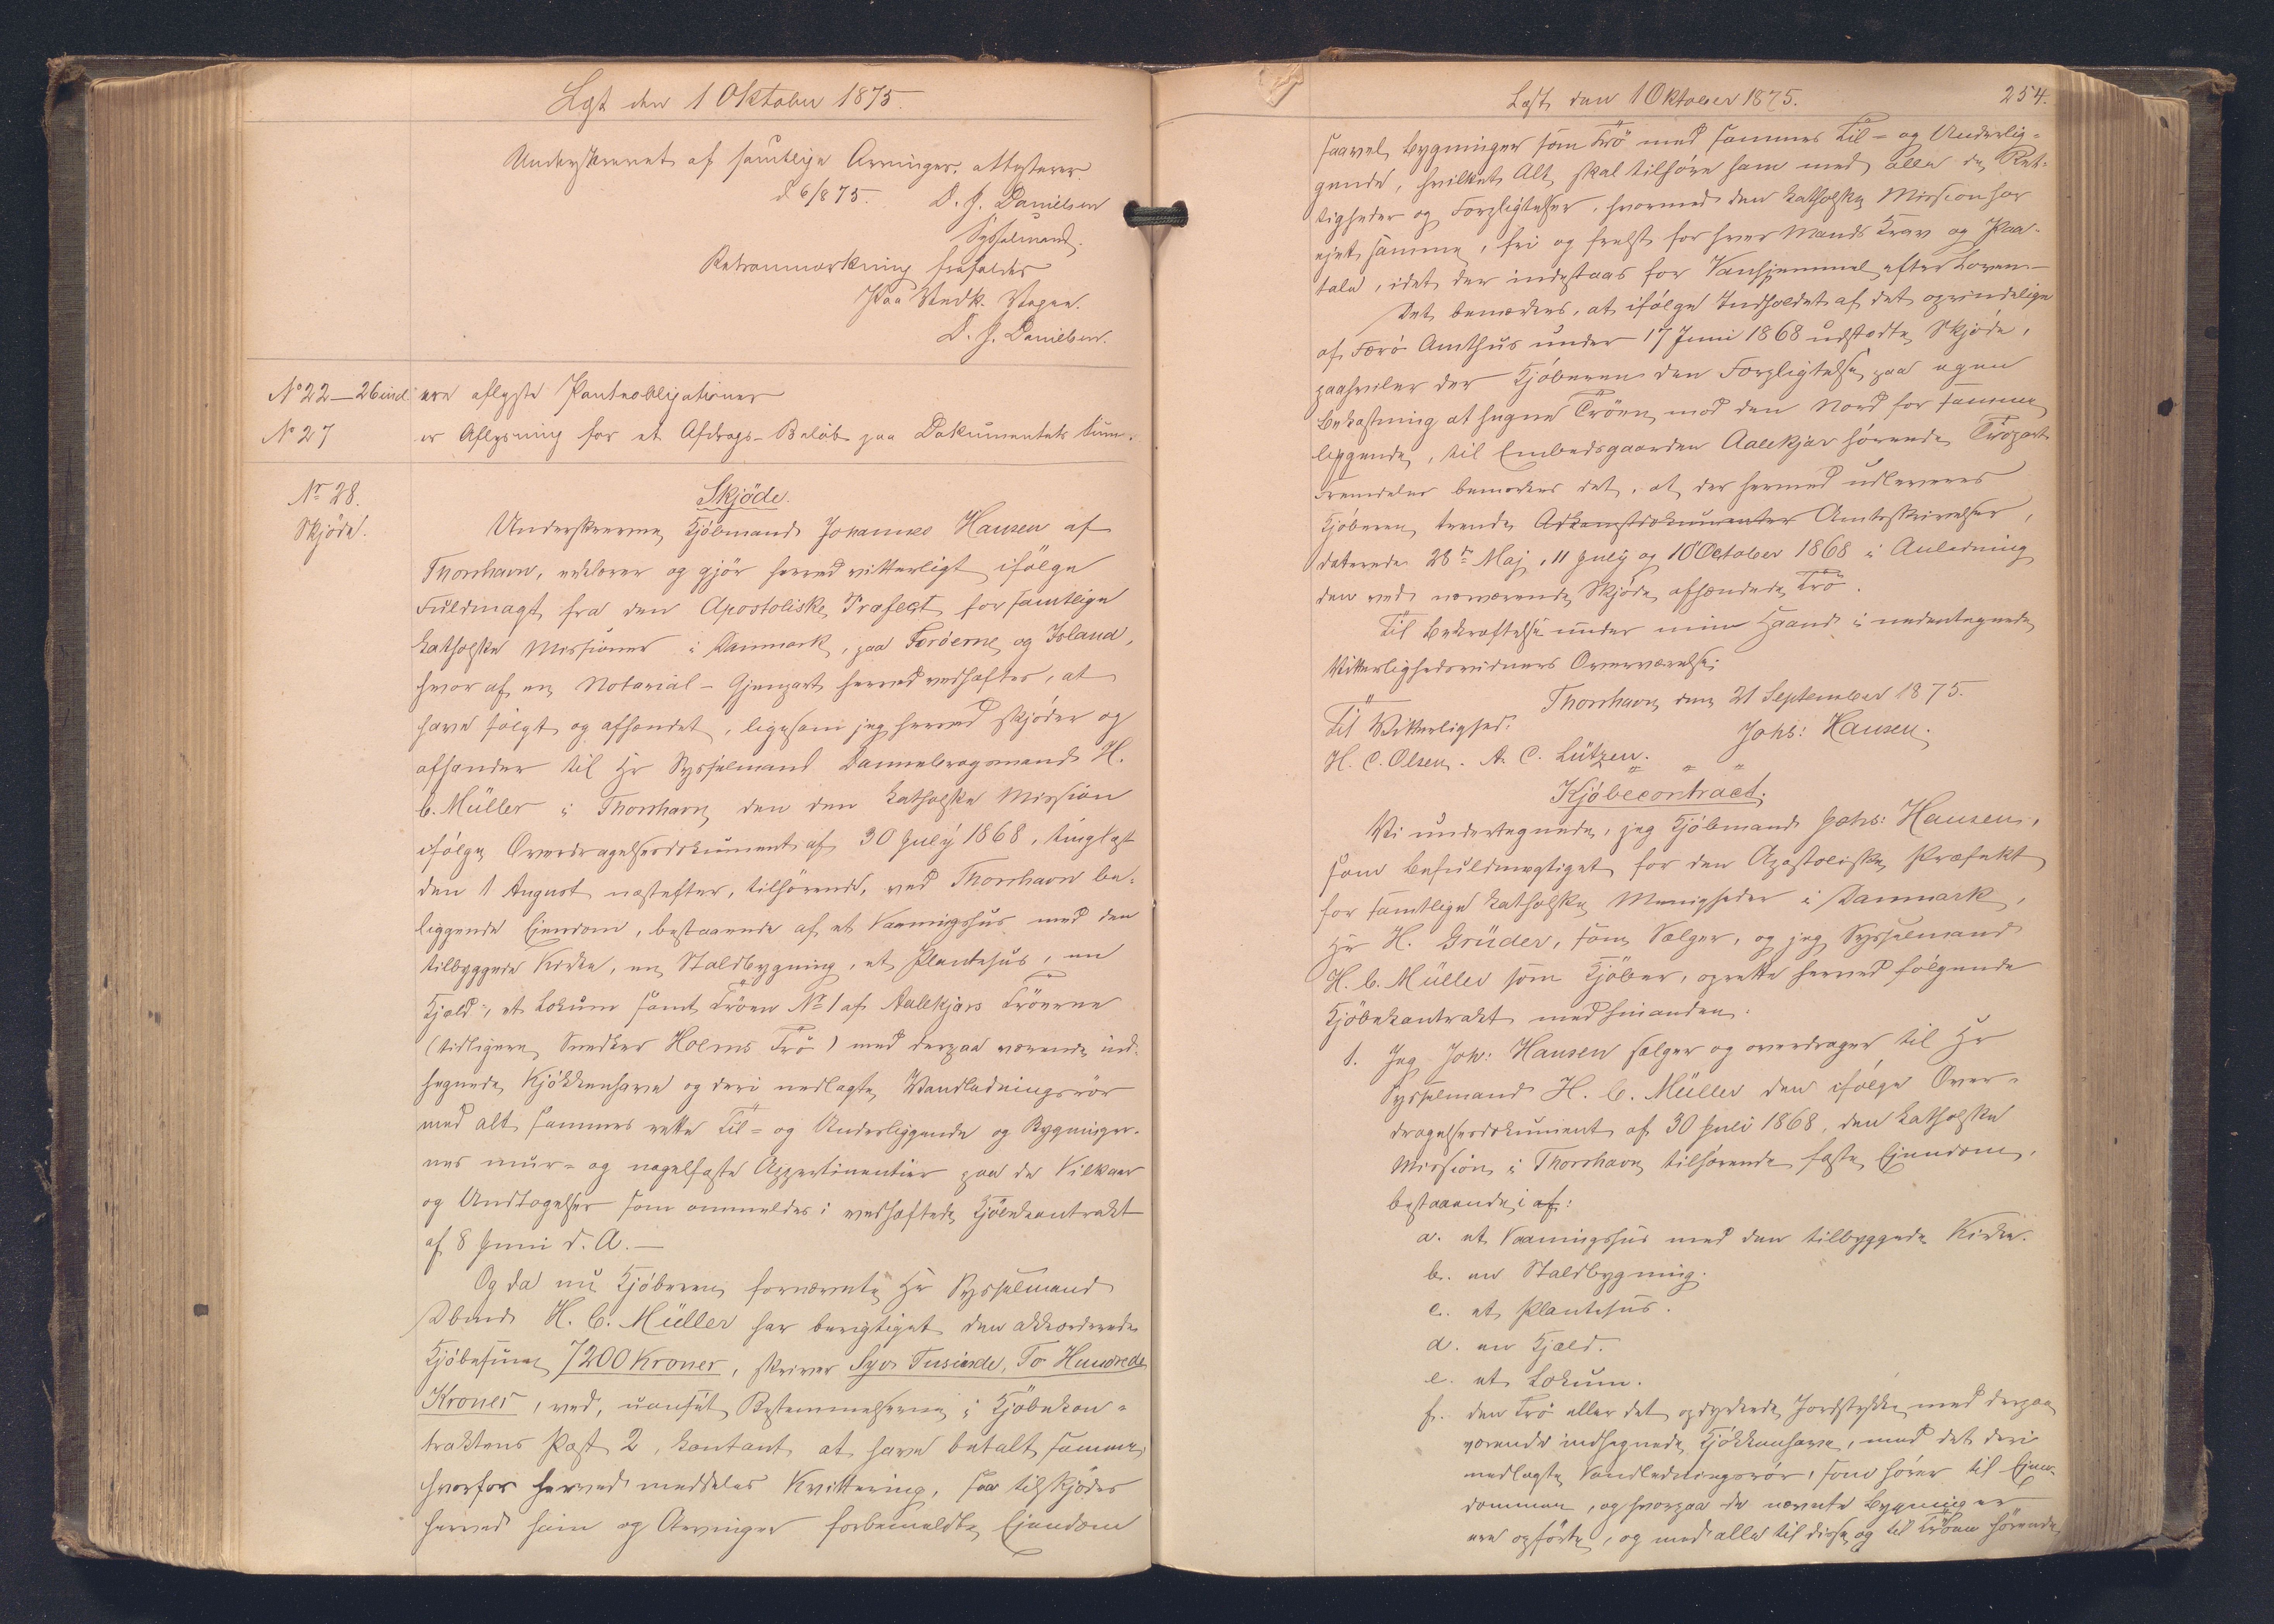 Læst den 1 Oktober 1875.
Underskrevet af samtlige Arvinger, attesterer
d 6/8 75. D. J. Danielsen
Sysselmand.
Retranmærkning frafaldes
Paa Vedk. Vegne.
D. J. Danielsen.
No 22–26 incl ere aflyste Panteobligationer
No 27 er Aflysning for et Afdrags-Beløb paa Dokumentets Sum.
Nr 28.
Skjöde.
Skjöde.
Underskrevne, Kjöbmand Johannes Hansen af
Thorshavn, erklærer og gjör herved vitterligt ifølge
Fuldmagt fra den Apostoliske Præfect for samtlige
katholske Missioner i Danmark, paa Færöerne og Island,
hvoraf en Notarial-Gjenpart herved vedhæftes, at
have solgt og afhændet, ligesom jeg herved skjöder og
afhænder til Hr Sysselmand Dannebrogsmand H.
C. Müller i Thorshavn den den katholske Mission
ifølge Overdragelsesdokument af 30 July 1868, tinglæst
den 1 August næstefter, tilhörende, ved Thorshavn be-
liggende Ejendom, bestaaende af et Vaaningshus med den
tilbyggede Kirke, en Staldbygning, et Plantehus, en
Kjæld, et Lokum samt Tröen Nr 1 af Aalekjærs Tröerne
(tidligere Snedker Holms Trö) med derpaa værende ind-
hegnede Kjökkenhave og deri nedlagte Vandledningsrör
med alt sammes rette Til- og Underliggende og Bygninger-
nes mur- og nagelfaste Appertinentier paa de Vilkaar
og Undtagelser som ommeldes i vedhæftede Kjöbekontrakt
af 8 Juni d. A.–
Og da nu Kjöberen fornævnte Hr Sysselmand
Dbmd H. C. Müller har berigtiget den akkorderede
Kjöbesum 7200 Kroner, skriver Syv Tusinde, To Hundrede
Kroner, ved, uanset Bestemmelserne i Kjöbekon-
traktens Post 2, kontant at have betalt samme,
hvorfor herved meddeles Kvittering, saa tilskjödes
herved ham og Arvinger forbemeldte Ejendom
Læst den 1 Oktober 1875.
254.
saavel Bygninger som Trö med sammes Til- og Underlig-
gende, hvilket Alt skal tilhöre ham med alle de Ret-
tigheder og Forpligtelser, hvormed den katholske Mission har
ejet samme, fri og frelst for hver Mands Krav og Paa-
tale, idet der indestaas for Vanhjemmel efter Loven–
Det bemærkes, at ifølge Indholdet af det oprindelige
af Færö Amthus under 17 Juni 1868 udstedte Skjöde,
paahviler der Kjöberen den Forpligtelse paa egen
Bekostning at hegne Tröen mod den Nord for samme
liggende, til Embedsgaarden Aalekjær hörende Tröpart.
Fremdeles bemærkes det, at der hermed udleveres
Kjöberen trende Adkomstdokumenter Amtsskrivelser,
daterede 28de Maj, 11 July og 10 October 1868 i Anledning
den ved nærværende Skjöde afhændede Trö.
Til Bekræftelse under min Haand i nedentegnede
Vitterlighedsvidners Overværelse.
Thorshavn den 21 September 1875.
Til Vitterlighed.
Johs: Hansen.
H. C. Olsen. A. C. Lützen.
Kjöbecontract.
Vi undertegnede, jeg Kjöbmand Johs: Hansen,
som Befuldmægtiget for den Apostoliske Præfekt
for samtlige katholske Menigheder i Danmark,
Hr H. Grüder, som Sælger, og jeg Sysselmand
H. C. Müller som Kjöber, oprette herved følgende
Kjöbekontrakt med hinanden.
1. Jeg Joh: Hansen sælger og overdrager til Hr
Sysselmand H. C. Müller den ifølge Over-
dragelsesdokument af 30 Juli 1868, den katholske
Mission i Thorshavn tilhörende faste Ejendom,
bestaaende i af:
a. et Vaaningshus med den tilbyggede Kirke.
b. en Staldbygning.
c. et Plantehus.
d. en Kjæld.
e. et Lokum.
f. den Trö eller det opdyrkede Jordstykke med derpaa
værende indhegnede Kjökkenhave, med det deri
nedlagte Vandledningsrör, som hörer til Ejen-
dommen, og hvorpaa de nævnte Bygninger
ere opförte, og med alle til disse og til Tröen hörende